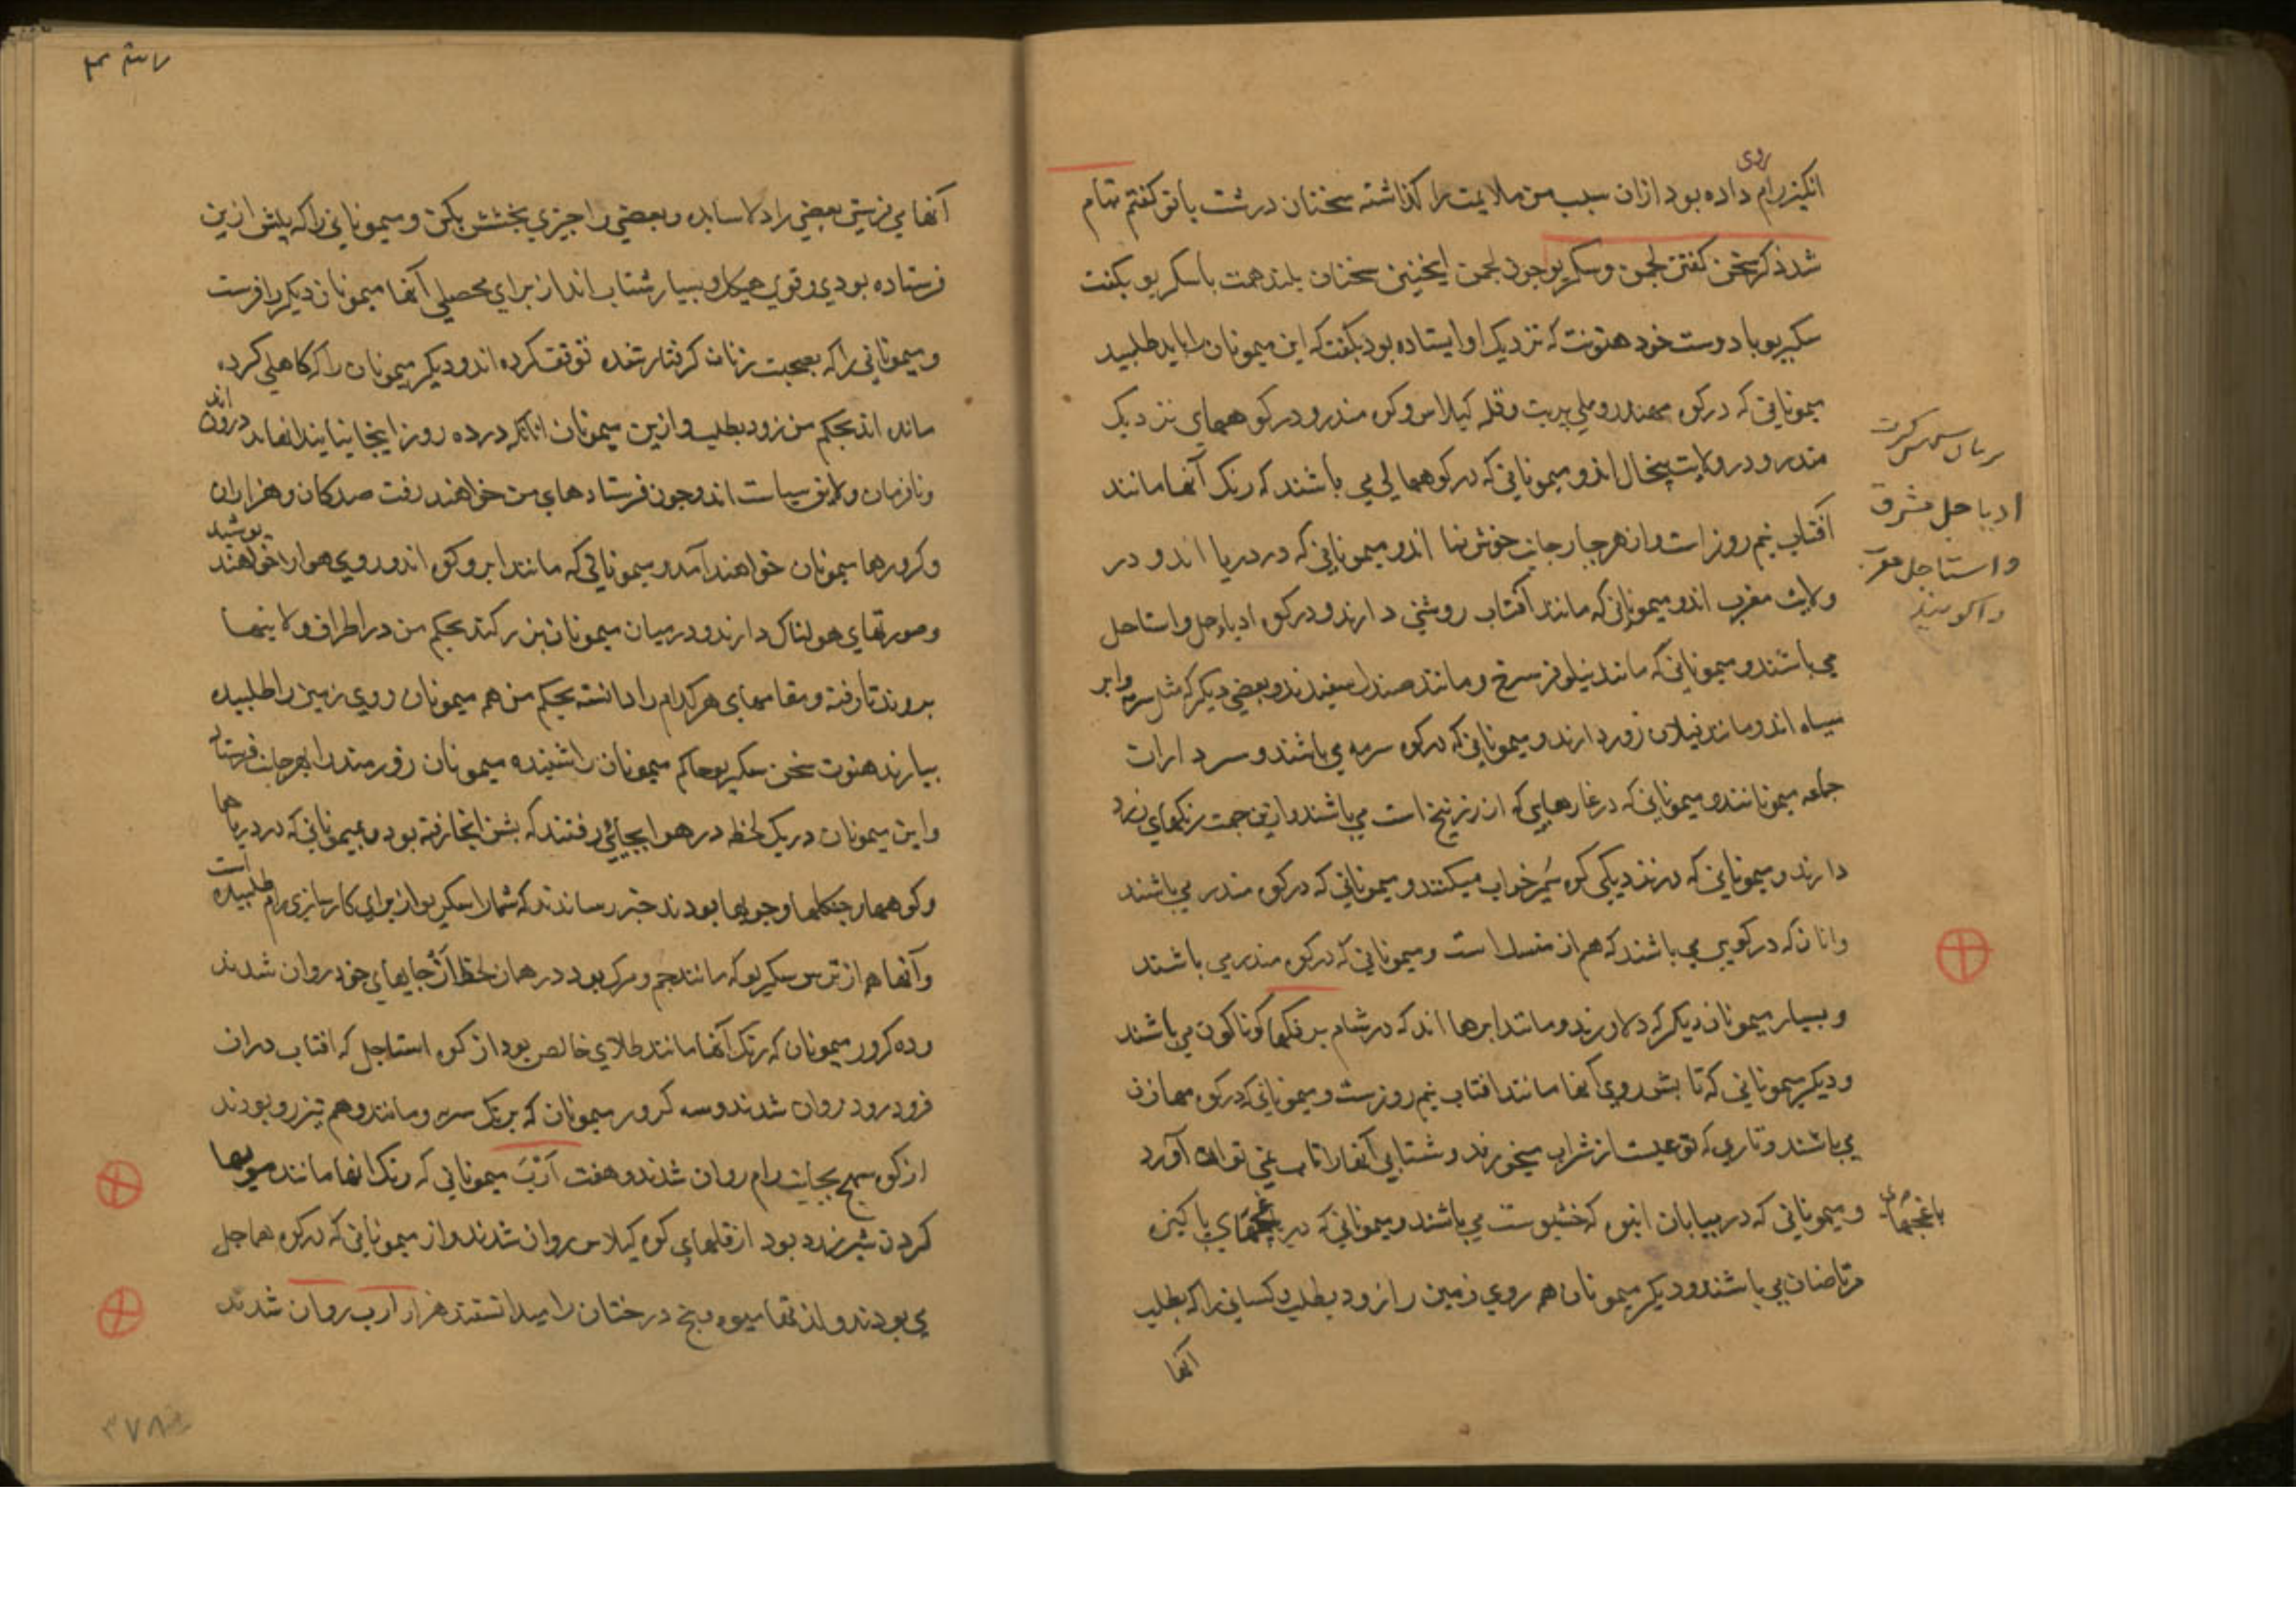 انکیز رام روی داده بود ازان سبب من ملایمت را کذاشته سخنان درشت باتو کفتم تمام
شد ذکر سخن کفتن لجمن و سکریو جون لجمن اینجنین سخنان بلند همت باسکریو بکفت
سکریو با دوست خود هنونت که نزدیک او ایستاده بود بکفت که این میمونان را باید طلبید
میمونانی که در کوه مهندر و ملی پربت و قله کیلاس و کوه مندر و در کوههای نزدیک
مندر و در ولایت پنجال اند و میمونانی که در کوه همالی می باشند که رنک آنها مانند
آفتاب نیم روز است و از هر جهار جانب خوش نما اند و میمونانی که در دریا اند و در
ولایت مغرب اند و میمونانی که مانند آفتاب روشنی دارند و در کوه ادیاجل و استاجل
می باشند و میمونانی که مانند نیلوفر سرخ و مانند صندل سفیدند و بعضی دیکر که مثل سرمه و ابر
سیاه اند و مانند فیلان زور دارند و میمونانی که در کوه سرمه می باشند و سرداران
جامه میمونانند و میمونانی که در غارهایی که از زرنیخ است می باشند و ازین جهت رنکهای زرد
دارند و میمونانی که در نزدیکی کوه سمیر خواب میکنند و میمونانی که در کوه مندر می باشند
وانان که در کوهی می باشند که هم از منسل است و میمونانی که در کوه مندر می باشند
و بسیار میمونان دیکر که دلاورند و مانند ابرها اند که در شام برنکها کوناکون می باشند
و دیکر میمونانی که تابش روی آنها مانند افتاب نیم روز ست و میمونانی که در کوه مهارن
می باشند و تاری که نوعیست از شراب میخورند و شتابی آنها را تاب نمی توان آورد
و میمونانی که در بیابان انبوه که خشبوست می باشند و میمونانی که در باغچهای پاکیزه
مرتاضان می باشند و دیکر میمونان همه روی زمین را زود بطلب و کسانی را که بطلب
آنها
زبان سهنسکرت
ادیاجل مشرق
و استاجل مغرب
را کویند
باغچهای
آنها می فرستی بعضی را دلاسا بده و بعضی را جیزی بخشش بکن و میمونانی را که پیش ازین
فرستاده بودی و قوی هیکل و بسیار شتاب اند از برای محصلی آنها میمونان دیکر را فرست
و میمونانی را که بصحبت زنان کرفتار شده توقف کرده اند و دیکر میمونان را که کاهلی کرده
مانده اند بحکم من زود بطلب و ازین میمونان انانکه در ده روز اینجا نیایند انها بد درون اند
و نافرمان و لایق سیاست اند و جون فرستادهای من خواهند رفت صدکان و هزاران
و کرورها میمونان خواهند آمد و میمونانی که مانند ابر و کوه اند و روی هوا را خواهند پوشید
و صورتهای هولناک دارند و در میان میمونان بزرکند بحکم من در اطراف ولایتها
بروند تا رفته و مقامهای هر کدام را دانسته بحکم من همه میمونان روی زمین را طلبیده
بیارند هنونت سخن سکریو حاکم میمونان را شنیده میمونان زورمند را بهر جانب فرستاد
و این میمونان در یک لحظه در هوا بجائی رفتند که بشن انجا رفته بود و میمونانی که در دریاها
و کوهها و جنکلها و جویها بودند خبر رساندند که شما را سکریو از برای کارسازی رام طلبیده است
و آنها هم از ترس سکریو که مانند جم و مرک بود در همان لحظه از جایهای خود روان شدند
و ده کرور میمونان که رنک آنها مانند طلای خالص بود از کوه استاجل که افتاب دران
فرود رود روان شدند و سه کرور میمونان که برنک سرمه و مانند وهم تیزرو بودند
از کوه سهج بجانب رام روان شدند و هفت ارب میمونانی که رنک انها مانند مویها
کردن شیر زرد بود از قلهای کوه کیلاس روان شدند و از میمونانی که در کوه هماجل
می بودند و از تمامی میوه و بیخ درختان را میدانستند هزار ارب روان شدند
۳۷۸